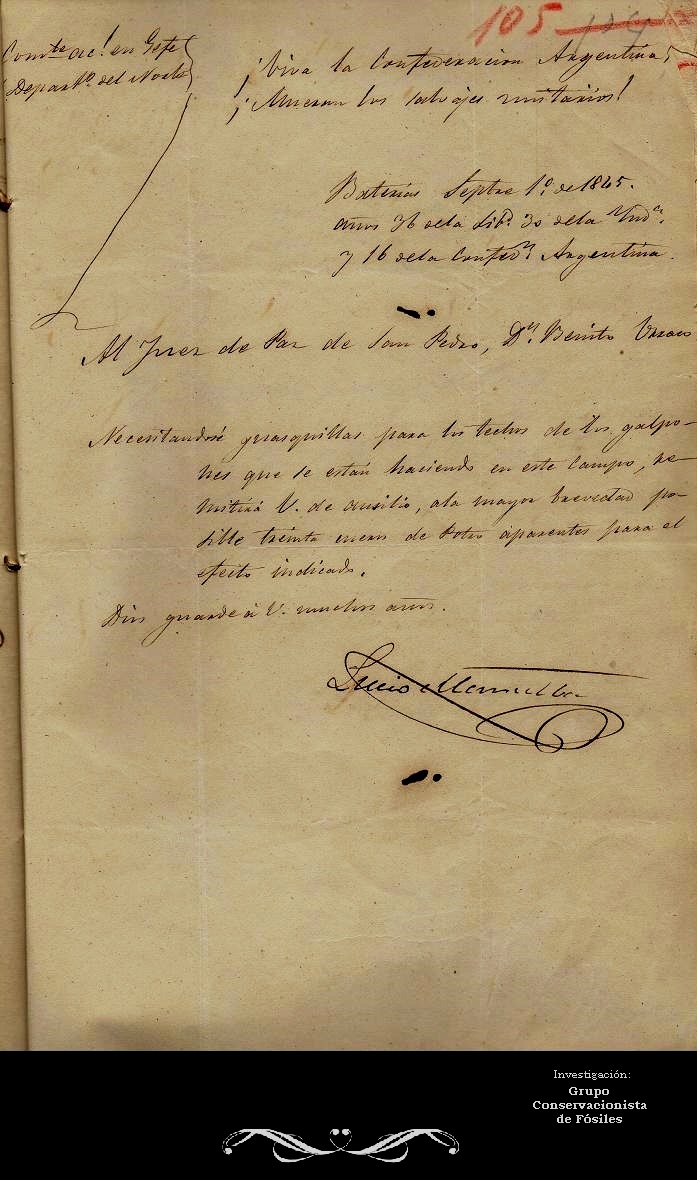 105 124
Comte acl en Gefe
Departo del Norte
¡Viva la Confederacion Argentina!
¡Mueran los salvajes unitarios!
Baterias Septre 1º de 1845.
años 36 de la Libd 30 de la Inda
y 16 de la Confedn Argentina.
Al Juez de Paz de San Pedro, Dn Benito Urraco
Necesitandose guasquillas para los techos de los galpo-
nes que se están haciendo en este Campo, re-
mitirá V. de ausilio, a la mayor brevedad po-
sible treinta cueros de Potro aparentes para el
efecto indicado.
Dios guarde á V. muchos años.
Lucio Mansilla
Investigación:
Grupo
Conservacionista
de Fósiles